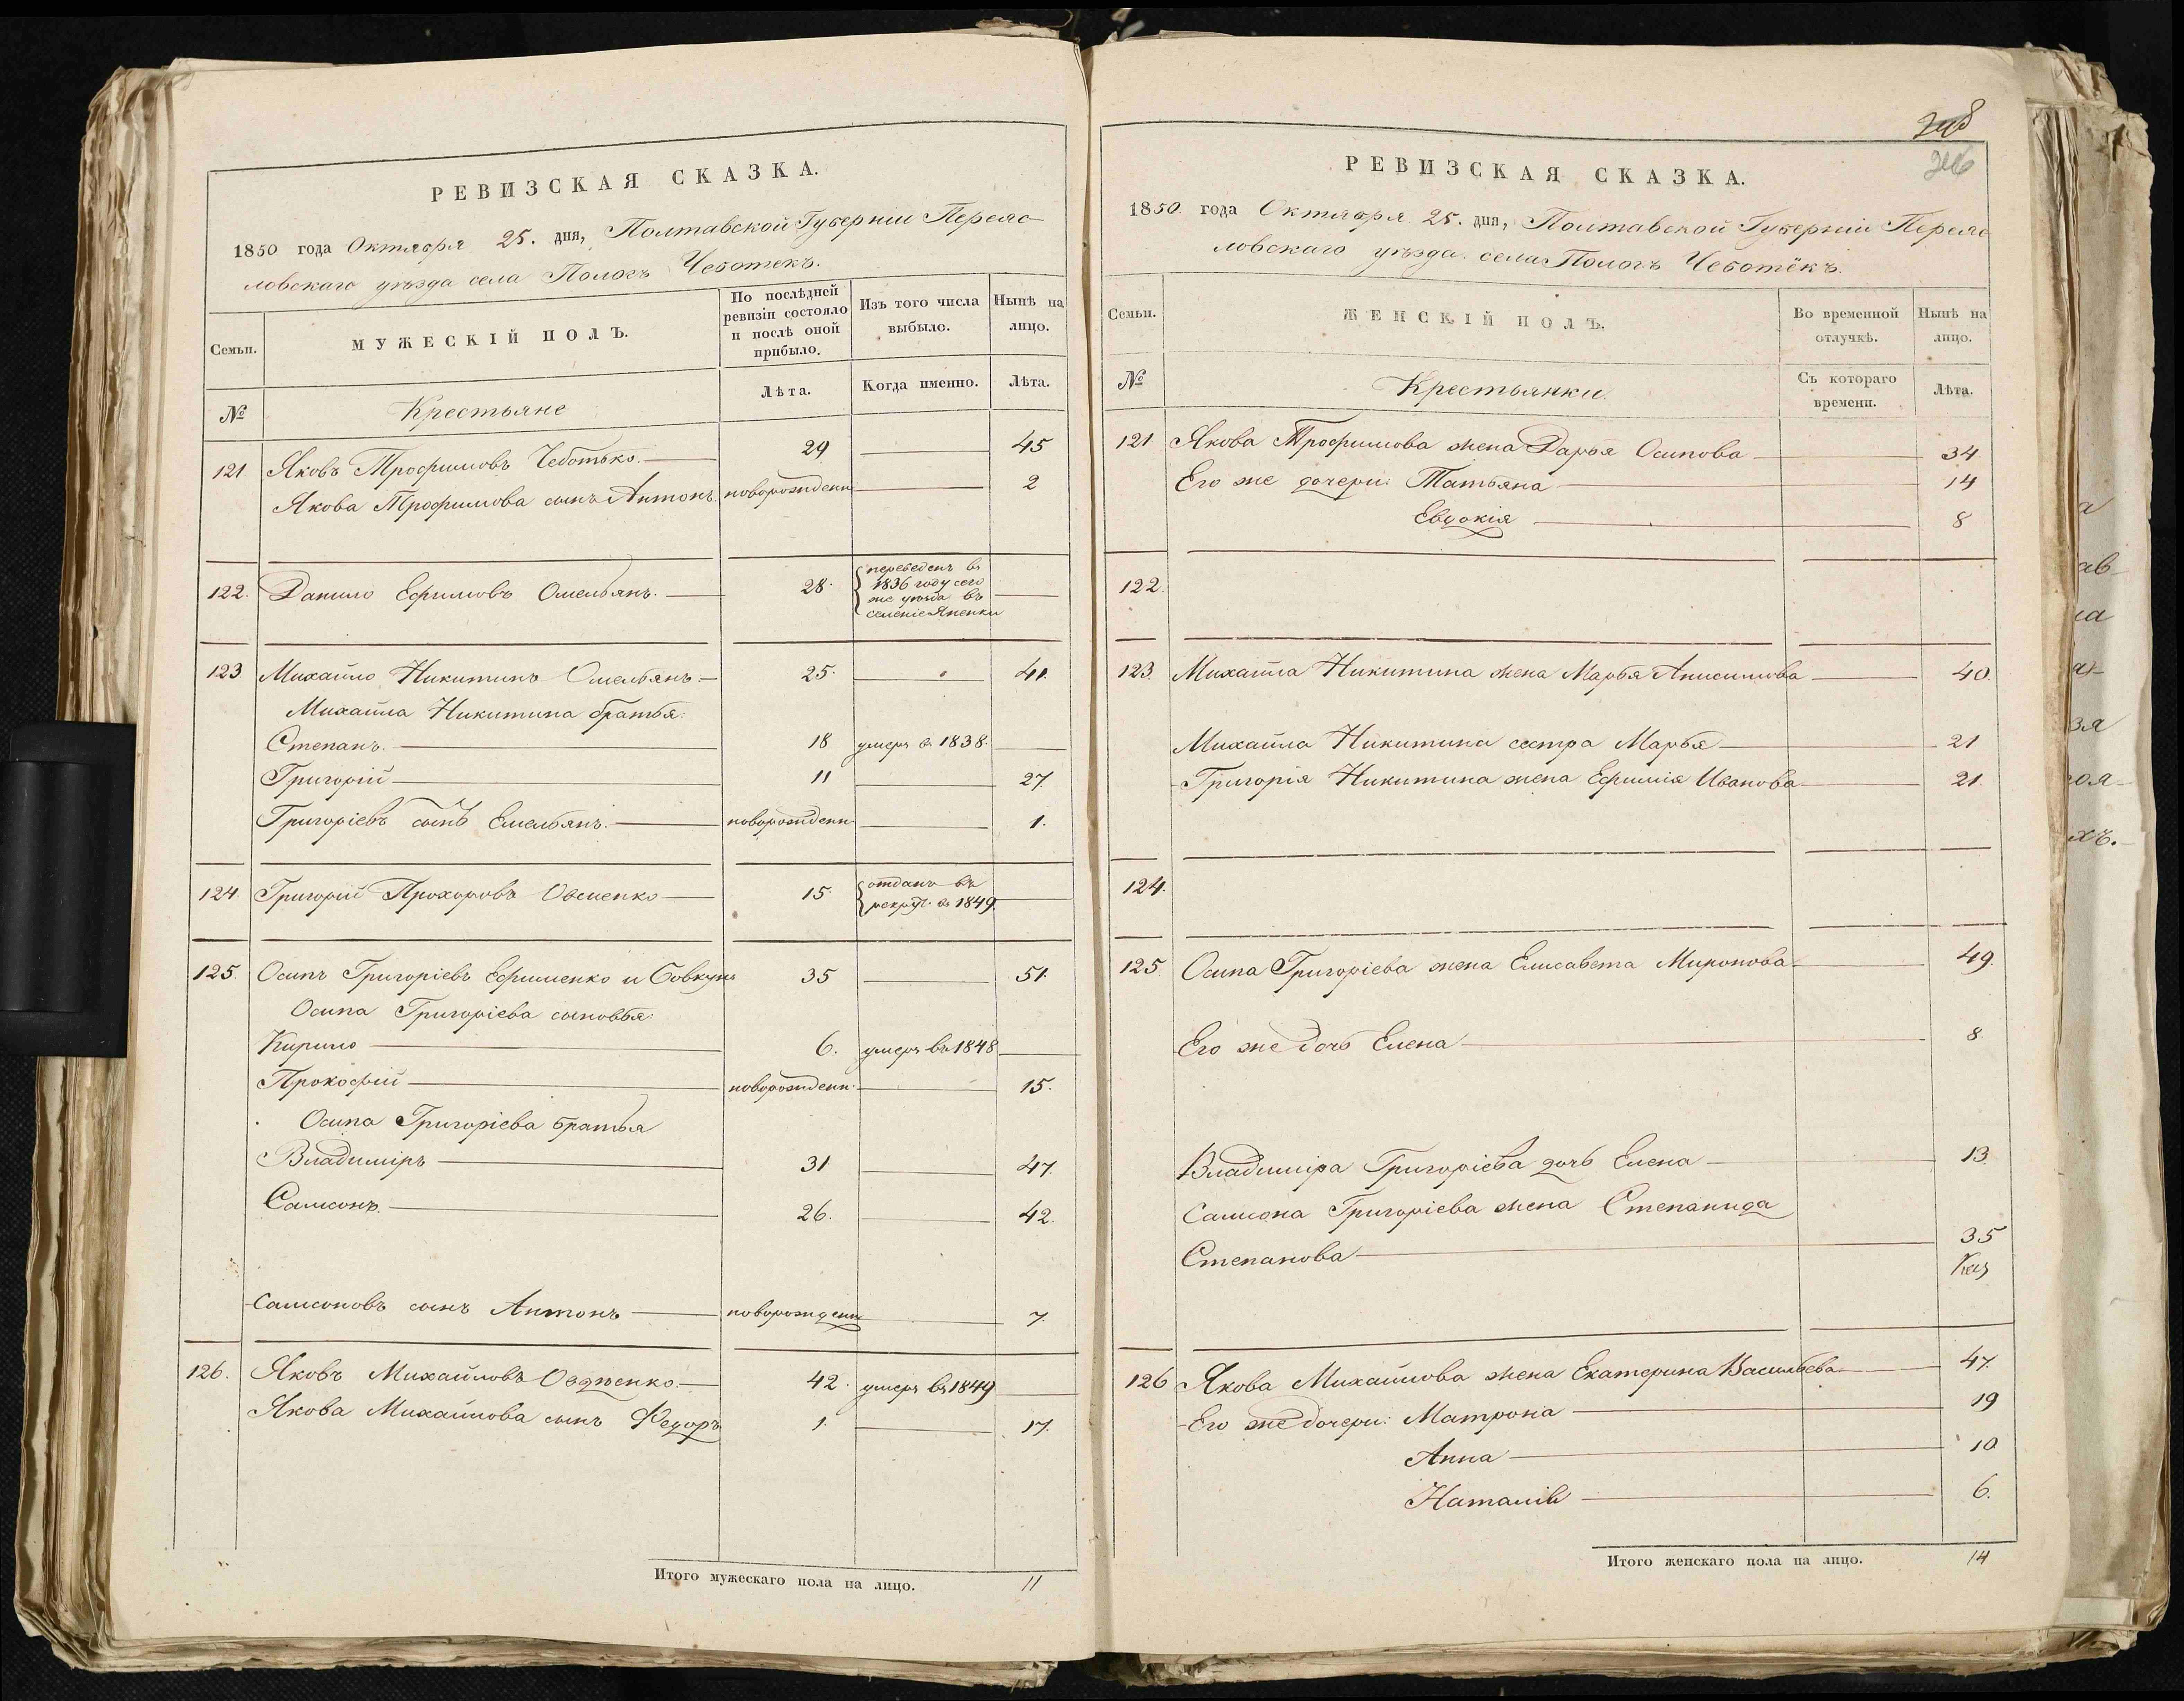 РЕВИЗСКАЯ СКАЗКА.
1850 года Октября 25. дня, Полтавской Губерніи Переяс-
ловскаго уѣзда села Пологъ Чеботекъ.
Семьи.
МУЖЕСКІЙ ПОЛЪ.
По послѣдней
ревизіи состояло
и послѣ оной
прибыло.
Изъ того числа
выбыло.
Нынѣ на
лицо.
№
Крестьяне
Лѣта.
Когда именно.
Лѣта.
121 Яковъ Трофимовъ Чеботько. 29 45
Якова Трофимова сынъ Антонъ. новорожденн 2
122. Данило Ефимовъ Омельянъ. 28. переведенъ въ
1836 году сего
же уѣзда въ
селеніе
123 Михайло Никитинъ Омельянъ 25. 41.
Михайла Никитина братья:
Степанъ. 18 умеръ в. 1838.
Григорій 11 27.
Григоріевъ сынъ Емельянъ. новорожденн 1.
124. Григорій Прохоровъ Овсіенко 15. отданъ въ
рекрут. въ 1849.
125 Осипъ Григоріевъ Ефименко и Совкунъ 35 51.
Осипа Григоріева сыновья:
Кирило 6. умеръ въ 1848
Прокофій новорожденн. 15.
Осипа Григоріева братья
Владиміръ 31 47.
Самсонъ. 26. 42.
Самсоновъ сынъ Антонъ новорожденн 7.
126. Яковъ Михайловъ 42. умеръ въ 1849
Якова Михайлова сынъ Федоръ 1. 17.
Итого мужескаго пола на лицо. 11
246
РЕВИЗСКАЯ СКАЗКА.
1850. года Октября 25. дня, Полтавской Губерніи Переяс
ловскаго уѣзда. села Пологъ Чеботёкъ.
Семьи.
ЖЕНСКІЙ ПОЛЪ.
Во временной
отлучкѣ.
Нынѣ на
лицо.
№
Крестьянки.
Съ котораго
времени.
Лѣта.
121 Якова Трофимова жена Дарья Осипова 34
Его же дочери: Татьяна 14
Евдокія 8
122.
123. Михайла Никитина жена Марья Анисимова 40.
Михайла Никитина сестра Марья 21
Григорія Никитина жена Ефимія Иванова 21.
124.
125. Осипа Григоріева жена Елисавета Миронова 49.
Его же дочь Елена 8
Владиміра Григоріева дочь Елена 13.
Самсона Григоріева жена Степанида
Степанова 35
126 Якова Михайлова жена Екатерина Васильева 47.
Его же дочери: Матрона 19
Анна 10
Наталія 6.
Итого женскаго пола на лицо. 14